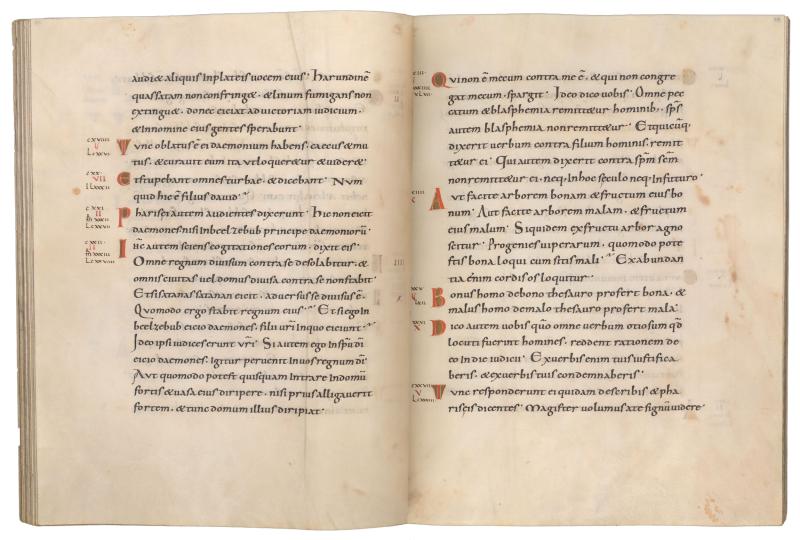 audi& aliquis Inplateis uocem eius· harundinē
quassatam non confring&· &linum fumigans non
extingu&· donec eiciat ad uictoriam iudicium·
&Innomine eius gentes sperabunt
cxviiii
v
Lxxvi
Tunc oblatus ē ei daemonium habens· caecus &mu
tus· &curauit eum ita utlo quer&ur &uider&·
cxx
vii
Et stupebant omnes turbae· &dicebant· Num
quid hic ē filius dauid·
cxxi
ii
Pharisei autem audientes dixerunt· hic non eicit
daemones nisi Inbeelzebub principe daemoniorū
cxxii
ii
Ihs autem sciens cogitationes eorum· dixit eis·
Omne regnum diuisum contra se desolabitur· &
omnis ciuitas uel domus diuisa contra se non stabit·
Et si satanas satanan eicit· aduersus se diuisus ē·
Quomodo ergo stabit regnum eius· Et si ego In
beelzebub eicio daemones· filii ur̄i Inquo eiciunt·
Ideo ipsi iudices erunt ur̄i· Si autem ego Insp̄u dī
eicio daemones· Igitur peruenit Inuos regnum dī·
Aut quomodo potest quisquam Intrare Indomū
fortis &uasa eius diripere· nisi prius alligauerit
fortem· &tunc domum illius diripiat·
Qui non ē mecum contra me ē· &qui non congre
gat mecum· spargit· Ideo dico uobis· Omne pec
catum &blasphemia remitt&ur hominib;· sp̄s
autem blasphemia non remitt&ur· Et quicūq;
dixerit uerbum contra filium hominis· remit
t&ur ei· Qui autem dixerit contra sp̄m scm̄
non remitt&ur ei· neq; Inhoc seculo neq; Infuturo·
Aut facite arborem bonam &fructum eius bo
num· Aut facite arborem malam· &fructum
eius malum· Siquidem exfructu arbor agno
scitur· Progenies uiperarum· quomodo pote
stis bona loqui cum sitis mali· Exabundan
tia enim cordis os loquitur·
Bonus homo debono thesauro profert bona· &
malus homo demalo thesauro profert mala·
Dico autem uobis qm̄ omne uerbum otiosum qd̄
locuti fuerint homines· reddent rationem de
eo In die iudicii· Exuerbis enim tuis iustifica
beris· &exuerbis tuis condemnaberis·
cxxvii
v
Tunc responderunt ei quidam describis &pha
riseis dicentes· Magister uolumus ate signū uidere·